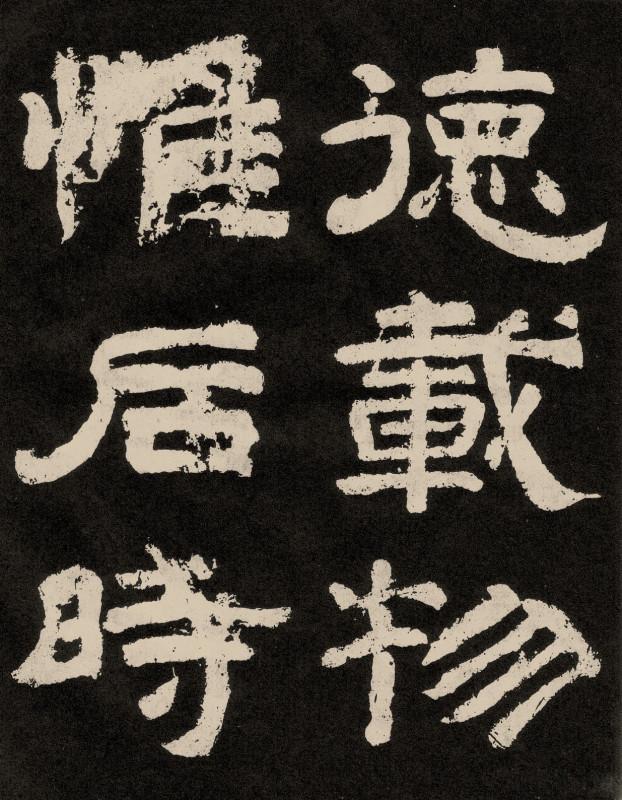 德載物
惟后時